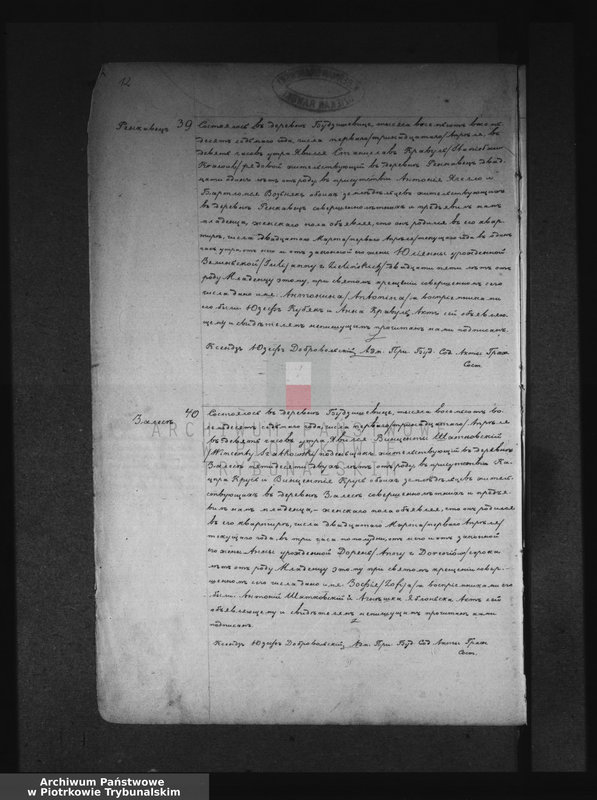 12
Ренкавецъ 39 Состоялось въ деревнѣ Будзишевице, тысяча восемьсотъ восемь
десятъ седьмаго года, числа перваго /тринадцатаго/ Апрѣля, въ
девять часовъ утра. Явился Станиславъ Кравулъ /Stanisław
рядовой жительствующій въ деревнѣ Ренкавецъ двад-
цати одинъ лѣтъ отъ роду, въ присутствіи Антонія и
Бартломея Возняка обоихъ земледѣльцевъ жительствующихъ
въ деревнѣ Ренкавецъ совершеннолѣтнихъ и предъявилъ намъ
младенца, женскаго пола объявляя, что онъ родился въ его квар-
тирѣ, числа двадцатаго Марта /перваго Апрѣля/ текущаго года въ
часъ утра, отъ него и отъ законной его жены Юліянны урожденной
/Julianny z двадцати пяти лѣтъ отъ
роду. Младенцу этому, при святомъ крещеніи совершенномъ сего
числа дано имя: Антонина /Antonina/, а воспріемниками
его были: Юзефъ Кубякъ и Анна Кравулъ. Актъ сей объявляю-
щему и свидѣтелямъ неписьменнымъ прочитанъ, нами подписанъ.
Ксендзъ Юзефъ Добровольскій, Адм. При. Буд. Сод. Акты Граж.
Сост.
Залесь 40 Состоялось въ деревнѣ Будзишевице, тысяча восемьсотъ во-
семьдесятъ седьмаго года, числа перваго /тринадцатаго/ Апрѣля
въ девять часовъ утра. Явился Винцентій Шатковский
/Wincenty Szatkowski/ жительствующій въ деревнѣ
Залесь пятидесяти двухъ лѣтъ отъ роду, въ присутствіи Ка-
цпра Крусъ и Винцентія Крусъ обоихъ земледѣльцевъ житель-
ствующихъ въ деревнѣ Залесь совершеннолѣтнихъ и предъя-
вилъ намъ младенца, женскаго пола объявляя, что онъ родился
въ его квартирѣ, числа двадцатаго Марта /перваго Апрѣля/
текущаго года, въ три часа по полудни, отъ него и отъ законной
его жены Анны урожденной /Anny z сорока
лѣтъ отъ роду. Младенцу этому при святомъ крещеніи совер-
шенномъ сего числа дано имя: Зофія /Zofija/, а воспріемниками его
были: Антоній Шатковскій и Агнѣшка Яблоньска. Актъ сей
объявляющему и свидѣтелямъ неписьменнымъ прочитанъ нами
подписанъ.
Ксендзъ Юзефъ Добровольскій, Адм. При. Буд. Сод. Акты Граж.
Сост.
Archiwum Państwowe
w Piotrkowie Trybunalskim